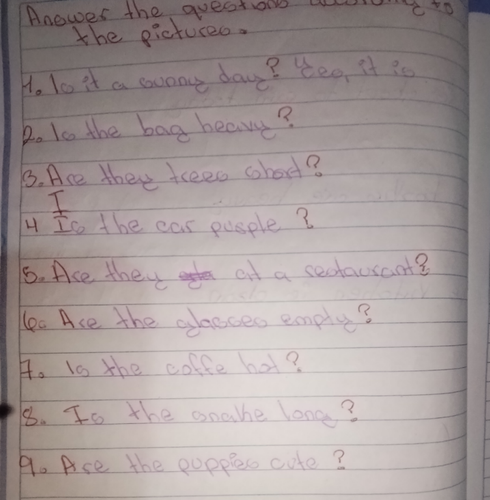 Answer the questions according to
the pictures.
1. Is it a sunny day? Yes, it is
2. Is the bag heavy?
3. Are they trees short?
I
4 Is the car purple?
5. Are they at a restaurant?
6. Are the glasses empty?
7. Is the coffe hot?
8. Is the snake long?
9. Are the puppies cute?